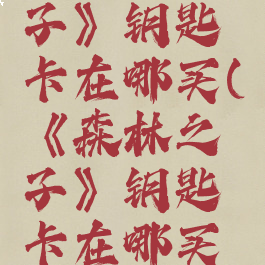 子》钥匙
卡在哪买(
《森林之
子》钥匙
卡在哪买